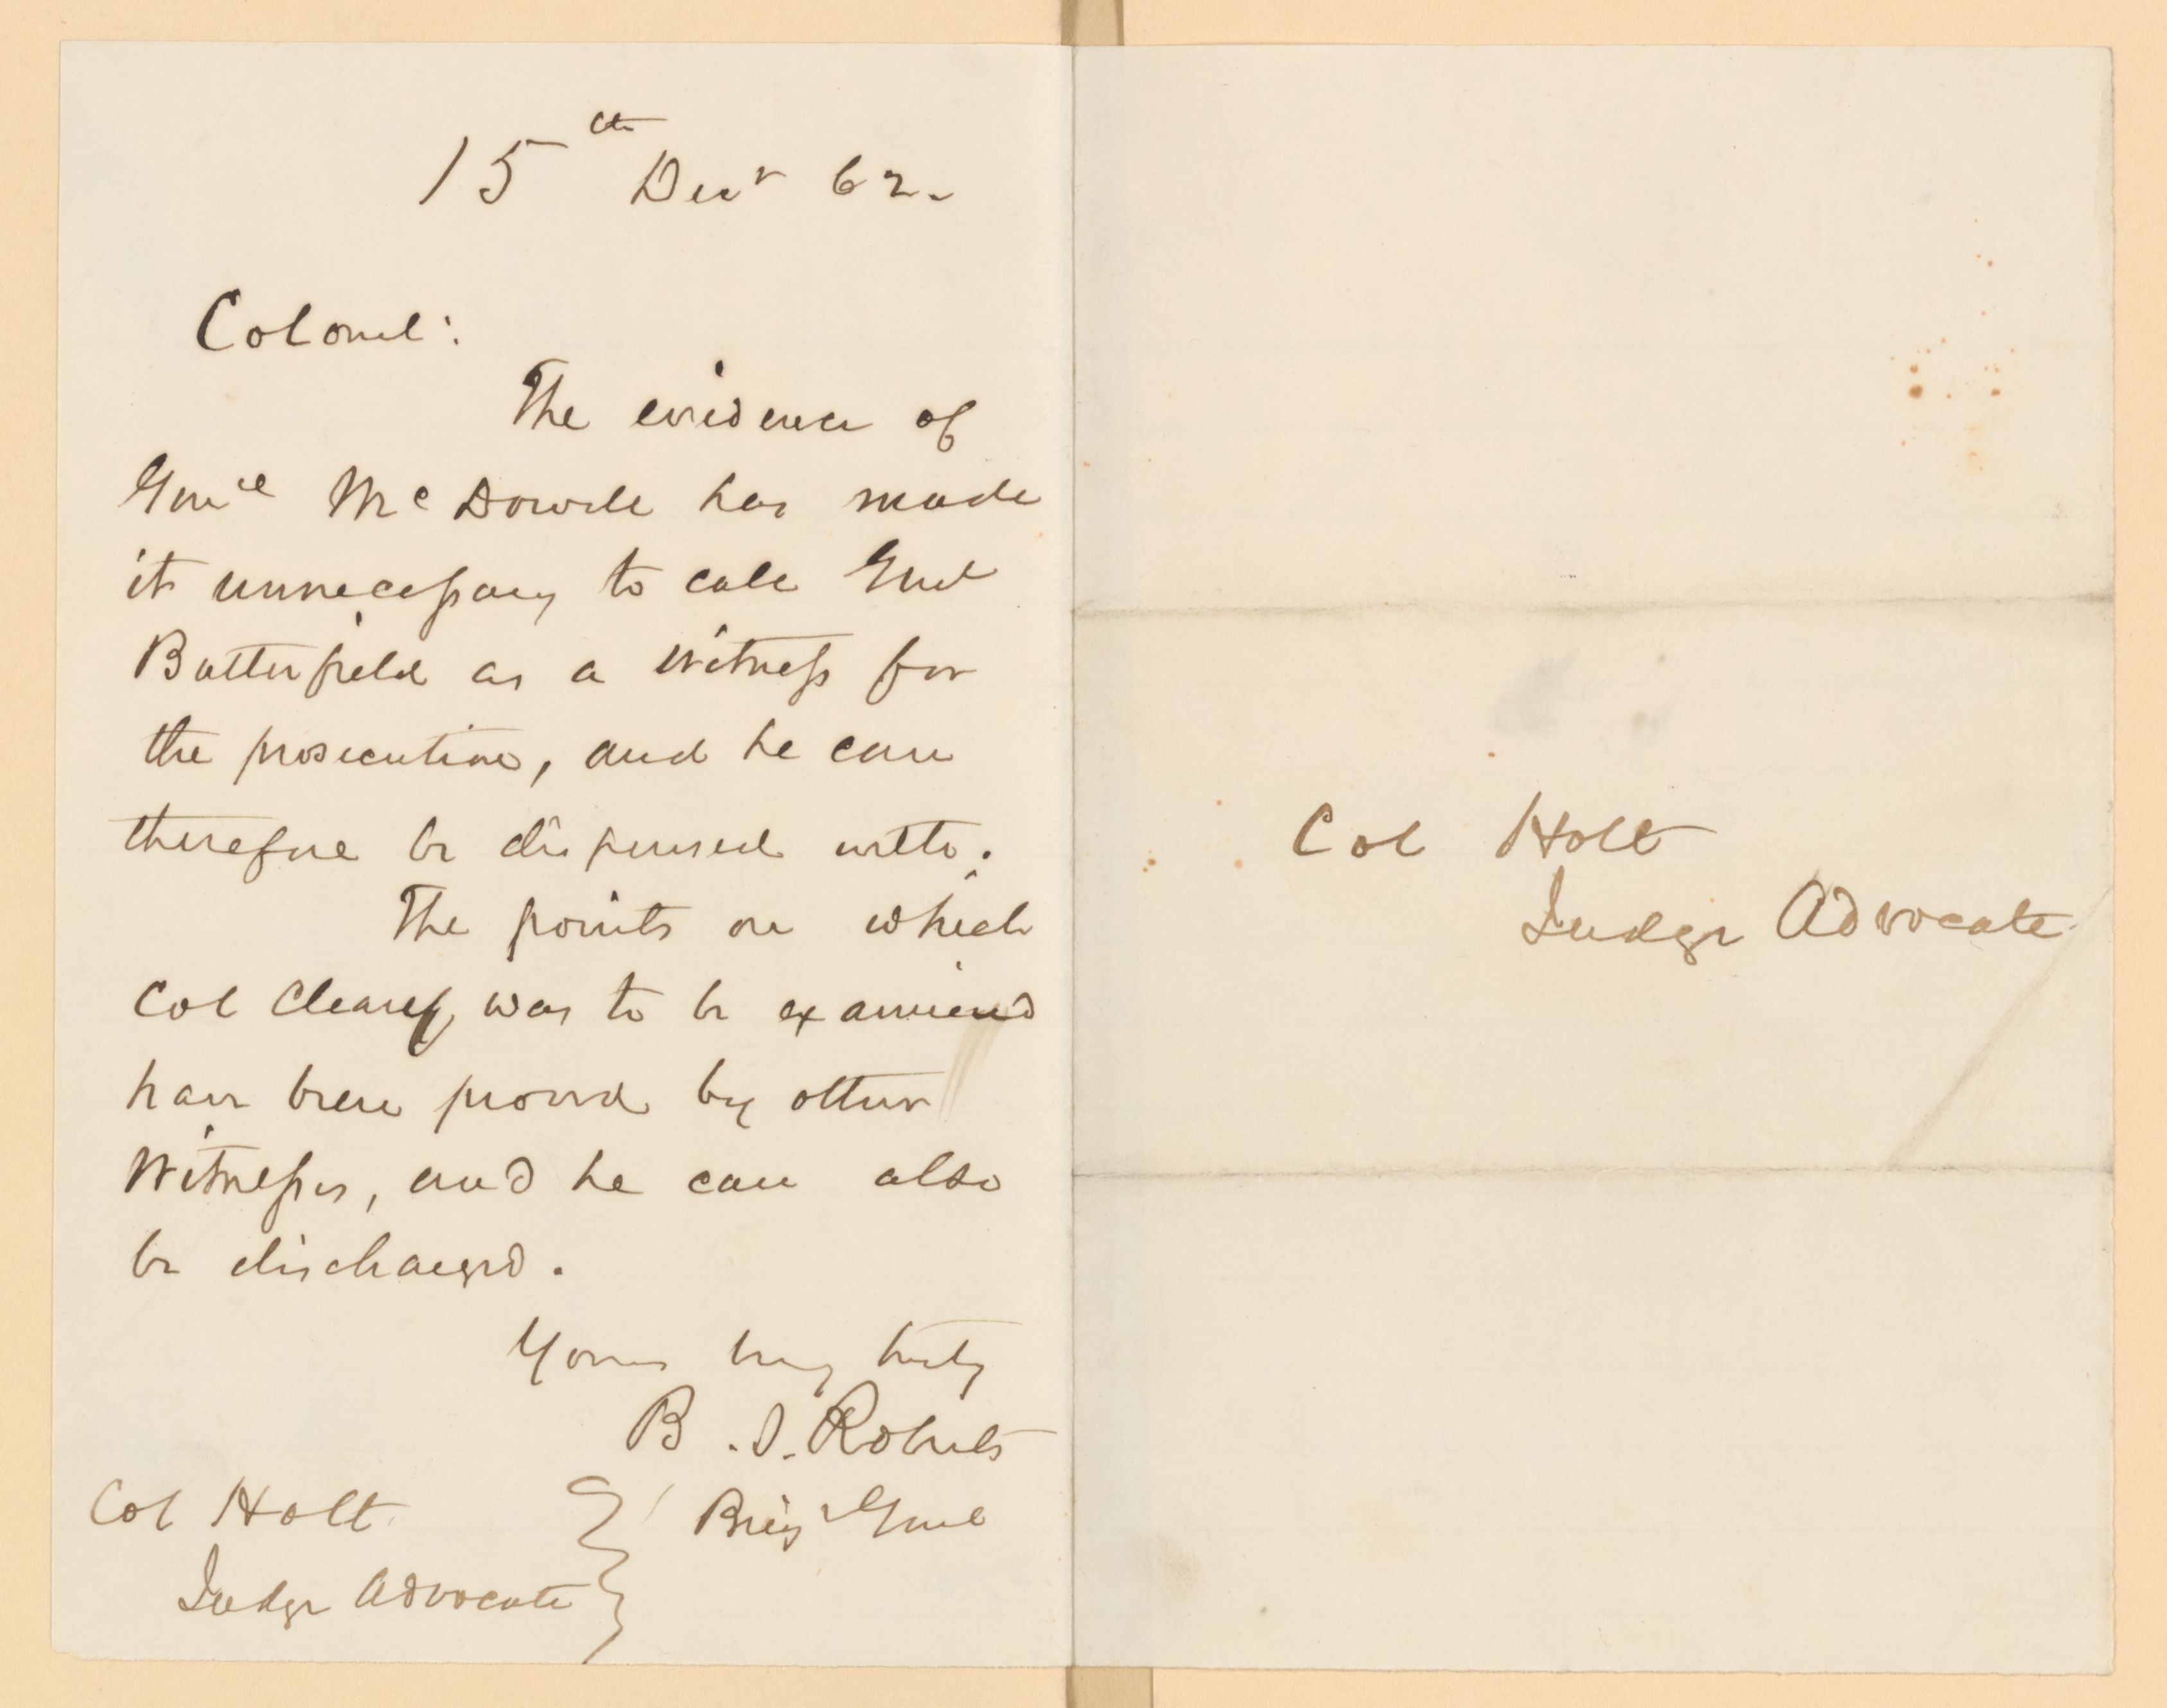 15th Decr 62.
Colonel:
The evidence of
Genl McDowell has made
it unnecessary to call Genl
Butterfield as a witness for
the prosecution, and he can
therefore be dispensed with.
The points on which
Col Cleary was to be examined
have been proved by other
Witnesses, and he can also
be discharged.
Yours very truly
B. S. Roberts
Brig Genl
Col Holt
Judge Advocate
Col Holt
Judge Advocate